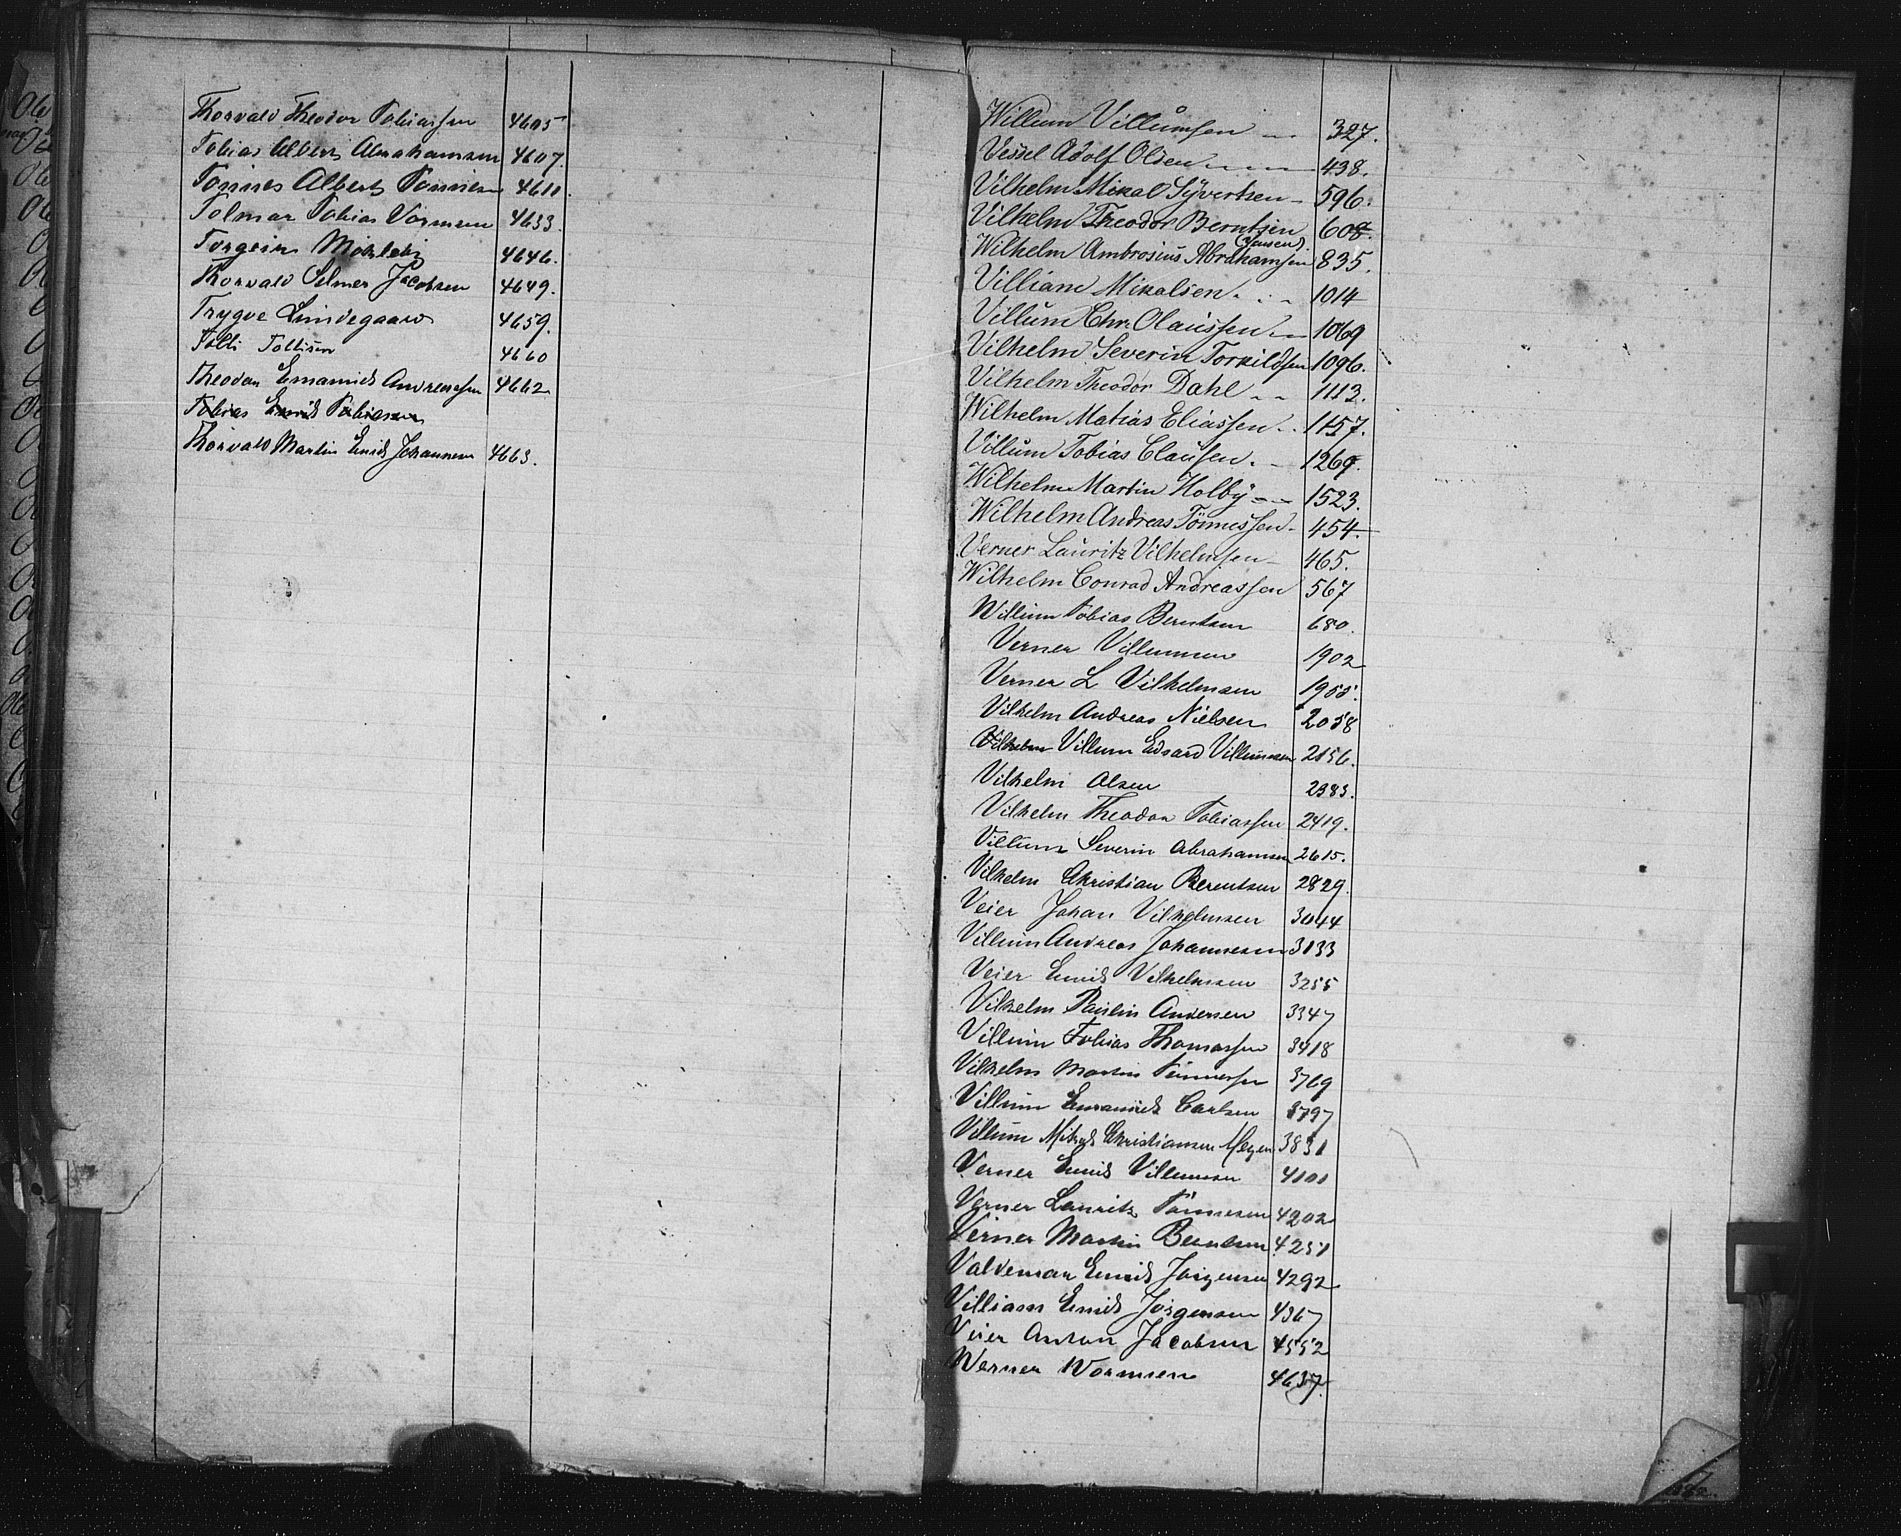 Thorvald Theodor Tobiassen 4605
Tobias Albert Abrahamsen 4607.
Tønnes Albert Tønnesen 4611.
Tolmar Tobias Vormsen 4633.
Torgeir 4646.
Thorvald Selmer Jacobsen 4649.
Trygve Lindegaard 4659.
Tolli Tollisen 4660
Theodor Emanuel Andreassen 4662
Tobias Emil Tobiassen
Thorvald Martin Emil Johannesen 4663.
Willum Villumsen 327.
Vessel Adolf Olsen 438.
Vilhelm Mikal Syvertsen 596.
Vilhelm Theodor Berntsen 608.
(Jansen).
Wilhelm Ambrosius Abrahamsen 835.
Villiam Mikalsen 1014
Villum Chr. Olaussen 1069
Vilhelm Severin Torkildsen 1096.
Vilhelm Theodor Dahl 1113.
Wilhelm Matias Eliassen 1157.
Villum Tobias Clausen 1269.
Wilhelm Martin Holby 1523.
Wilhelm Andreas Tönnessen 454.
Verner Lauritz Vilhelmsen 465.
Wilhelm Conrad Andreassen 567
Willum Tobias Berntsen 680.
Verner Villumsen 1902
Verner L Vilhelmsen 1955.
Vilhelm Andreas Nielsen 2058
Vilhelm Villum Edvard Villumsen 2156.
Vilhelm Olsen 2383.
Vilhelm Theodor Tobiassen 2419.
Villum Severin Abrahamsen 2615.
Vilhelm Christian Berentsen 2829.
Veier Johan Vilhelmsen 3044
Villum Andreas Johannesen 3133
Veier Emil Vilhelmsen 3255
Vilhelm Paulin Andersen 3347
Villum Tobias Thomassen 3418
Vilhelm Martin Tønnessen 3769
Villum Emanuel Carlsen 3797
Villum Mikal Christiansen Meyer 3831
Verner Emil Villumsen 4101
Verner Lauritz Tønnesen 4202
Verner Martin Berntsen 4251
Valdemar Emil Jørgensen 4292
Villiam Emil Jørgensen 4367
Veier Anton Jacobsen 4552
Werner Wormsen 4637.